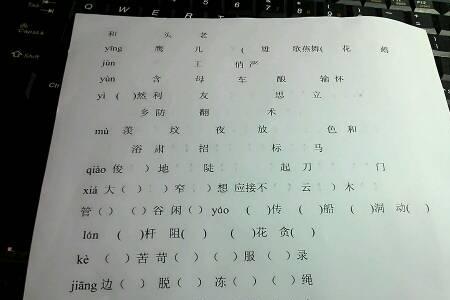 和 头 老
yīng 鹰 儿 ( 歌燕舞( 花
jùn 王 俏 严
yùn 含 母 车 酿 输 怀
yì ( )然 利 友 思 立
乡 防 翻 术
mù 羡 坟 夜 放 色 和
浴 肃 招 标 马
qiào 俊 ) 地 陡 起 刀 门
xiá 大( ) 窄( )想 应接不 云( )木
管( ) ( )谷 闲( ) yáo ( )传 ( )船 ( )洞 动( )
lán ( )杆 阻( ) ( )花 贪( )
kè ( )苦 苛( ) ( )服 ( )录
jiāng 边( ) 脱( ) 冻( ) ( )绳